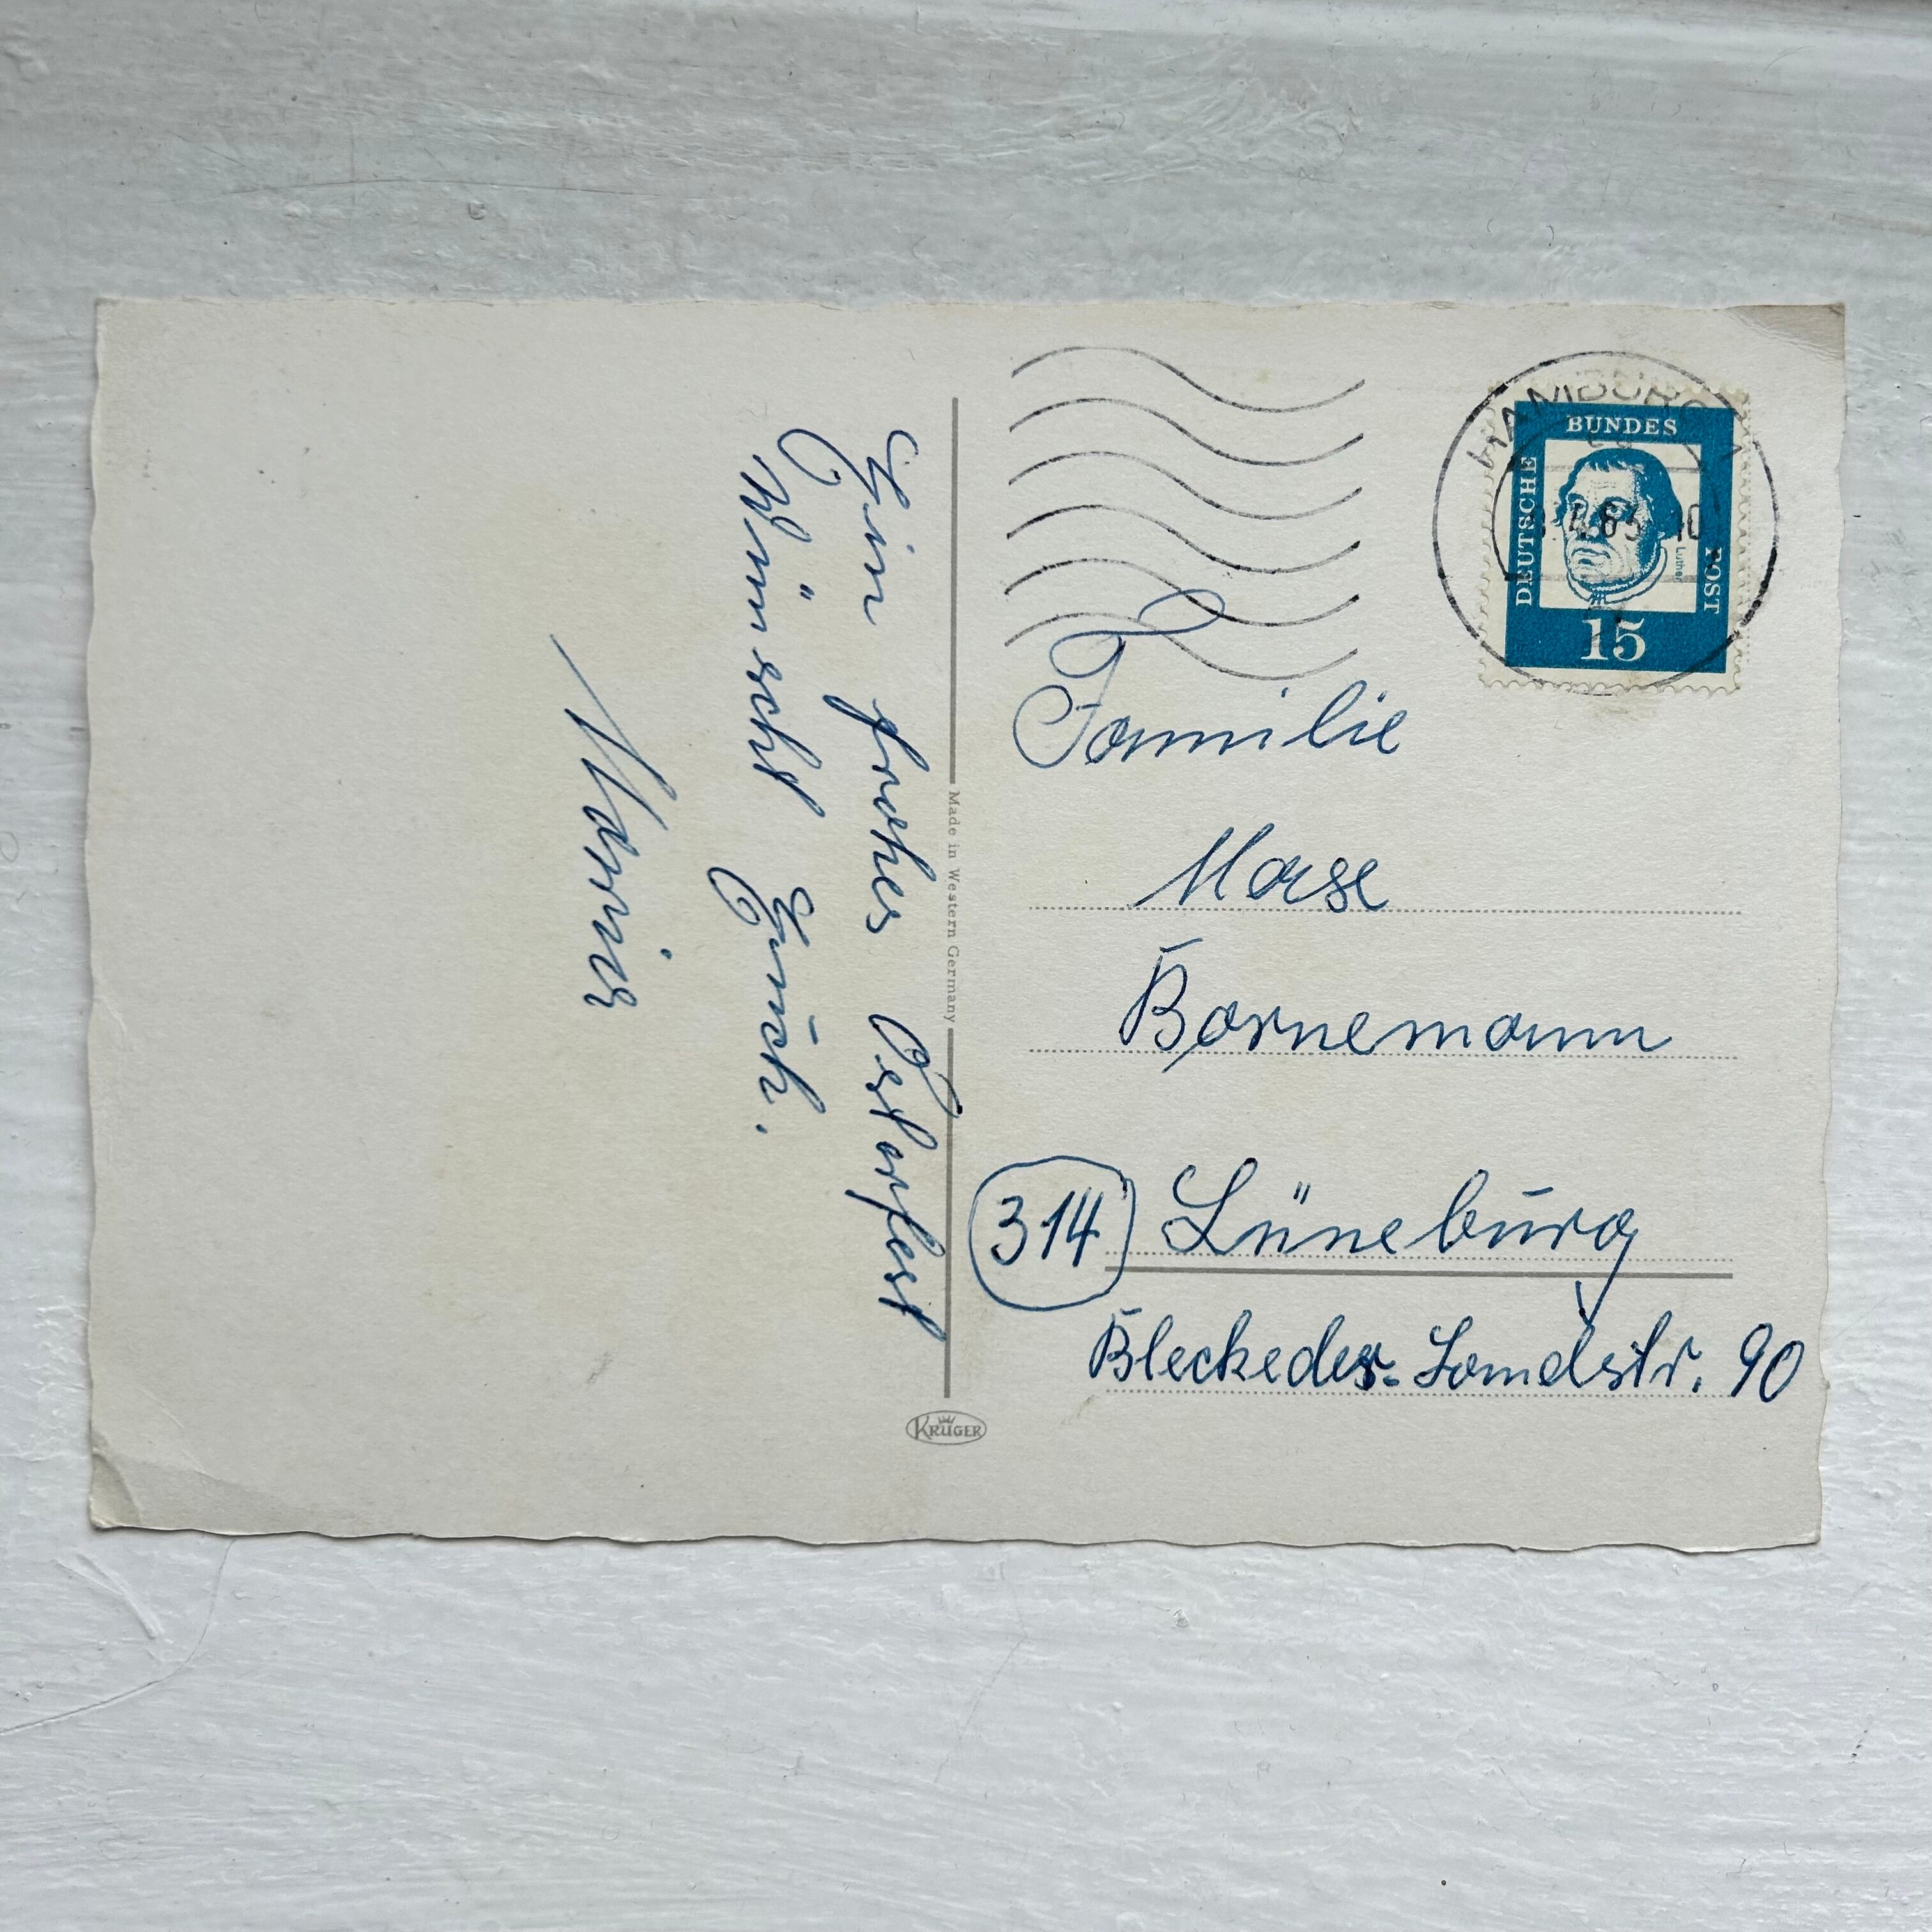 Ein frohes Osterfest
Wünscht Euch.
Made in Western Germany
KRÜGER
HAMBURG
DEUTSCHE
BUNDES
POST
Luther
15
Familie
Bornemann
314 Lüneburg
Bleckeder-Landstr. 90